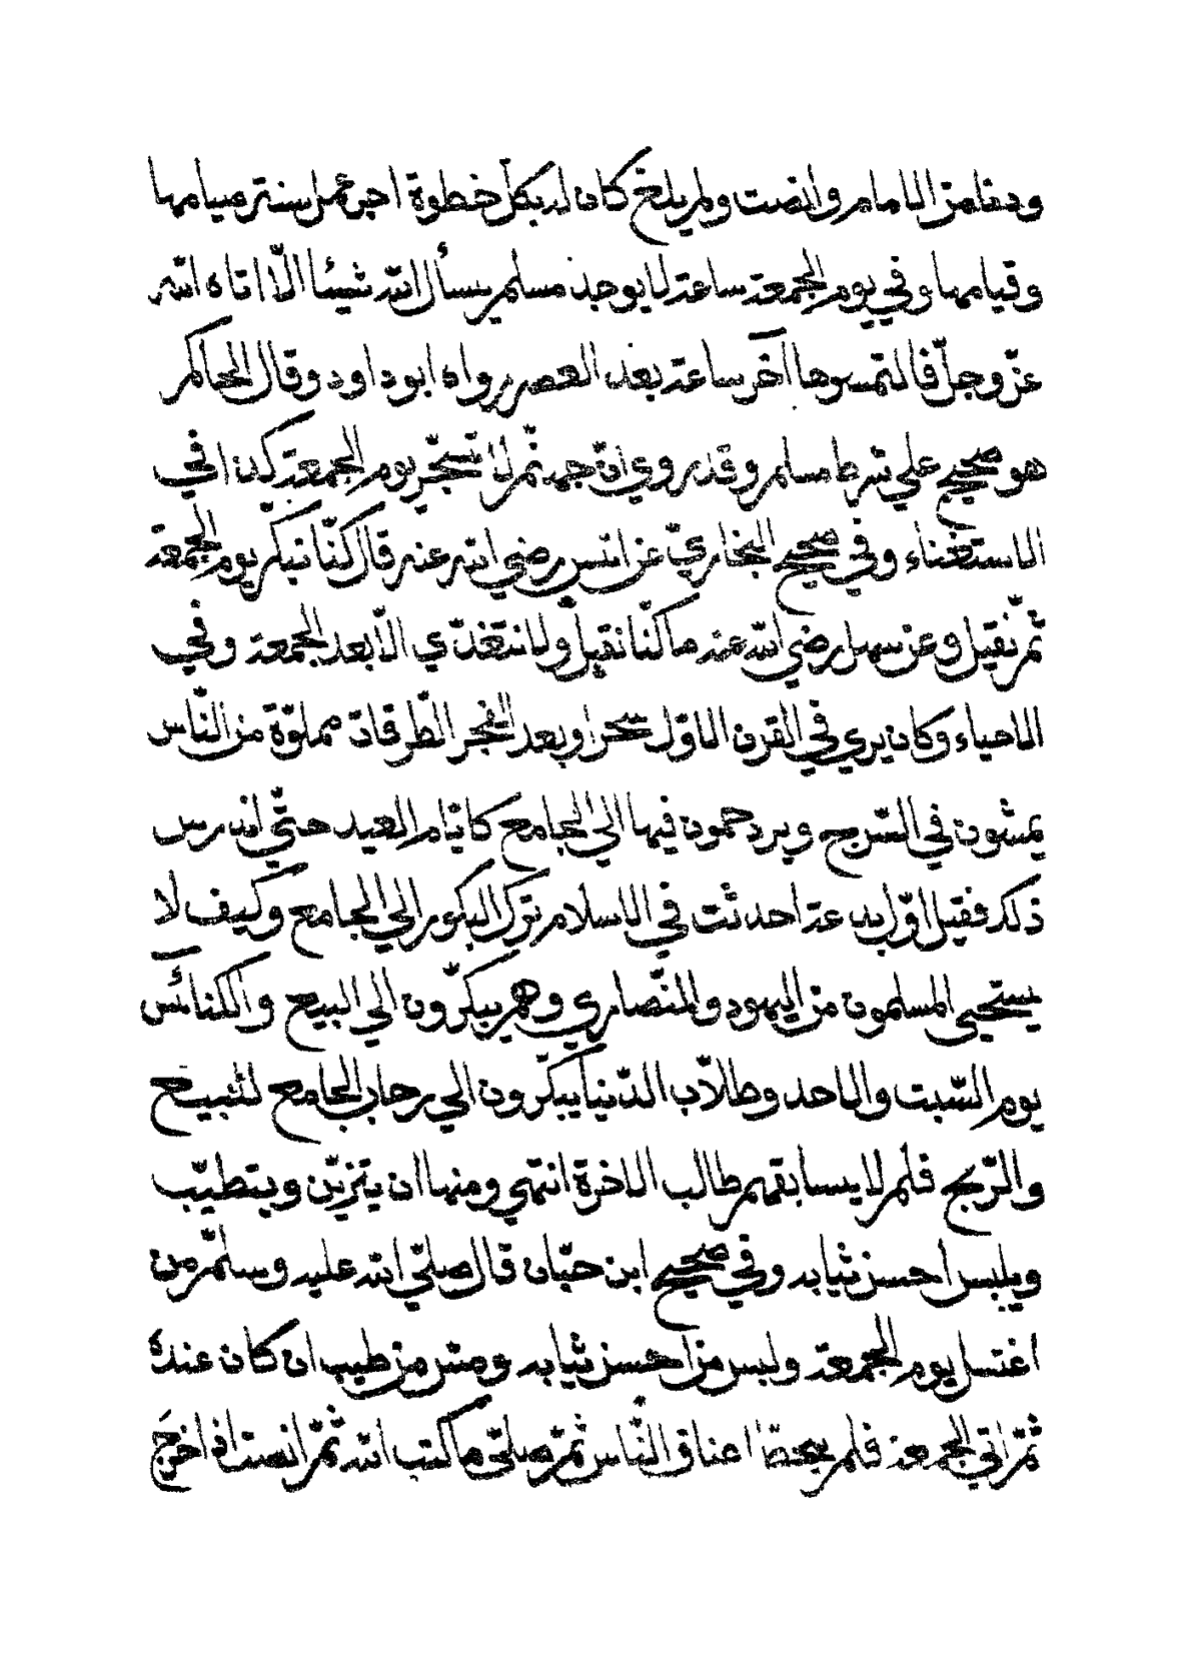 ودنا من الامام وانصت ولم يلغ كان له بكل خطوة اجر عمل سنة صيامها
وقيامها وفي يوم الجمعة ساعة لا يوجد مسلم يسأل الله شيئا الّا اتاه الله
عزّ وجلّ فالتمسوها آخر ساعة بعد العصر رواه ابو داود وقال الحاكم
هو صحيح علي شرط مسلم وقد روي انّ جهنّم لا تسجّر يوم الجمعة كذا في
الاستغناء وفي صحيح البخاريّ عن انس رضي الله عنه قال كنّا نبكّر يوم الجمعة
ثمّ نقيل وعن سهل رضي الله عنه ما كنّا نقيل ولا نتغدّي الّا بعد الجمعة وفي
الاحياء وكان يري في القرن الاوّل سحرا وبعد الفجر الطّرقات مملوّة من النّاس
يمشون في السّرج ويزدحمون فيها الي الجامع كايّام العيد حتّي اندرس
ذلك فقيل اوّل بدعة احدثت في الاسلام ترك البكور الي الجامع وكيف لا
يستحيي المسلمون من اليهود والنّصاري وهم يبكّرون الي البيع والكنائس
يوم السّبت والاحد وطلاّب الدّنيا يبكّرون الي رحاب الجامع للبيع
والرّبح فلم لا يسابقهم طالب الاخرة انتهي ومنها ان يتزيّن ويتطيّب
ويلبس احسن ثيابه وفي صحيح ابن حبّان قال صلّي الله عليه وسلّم من
اغتسل يوم الجمعة ولبس من احسن ثيابه ومسّ من طيب ان كان عنده
ثمّ اتي الجمعة فلم يتخطّ اعناق النّاس ثمّ صلّي ما كتب الله ثمّ انصت اذا خرج